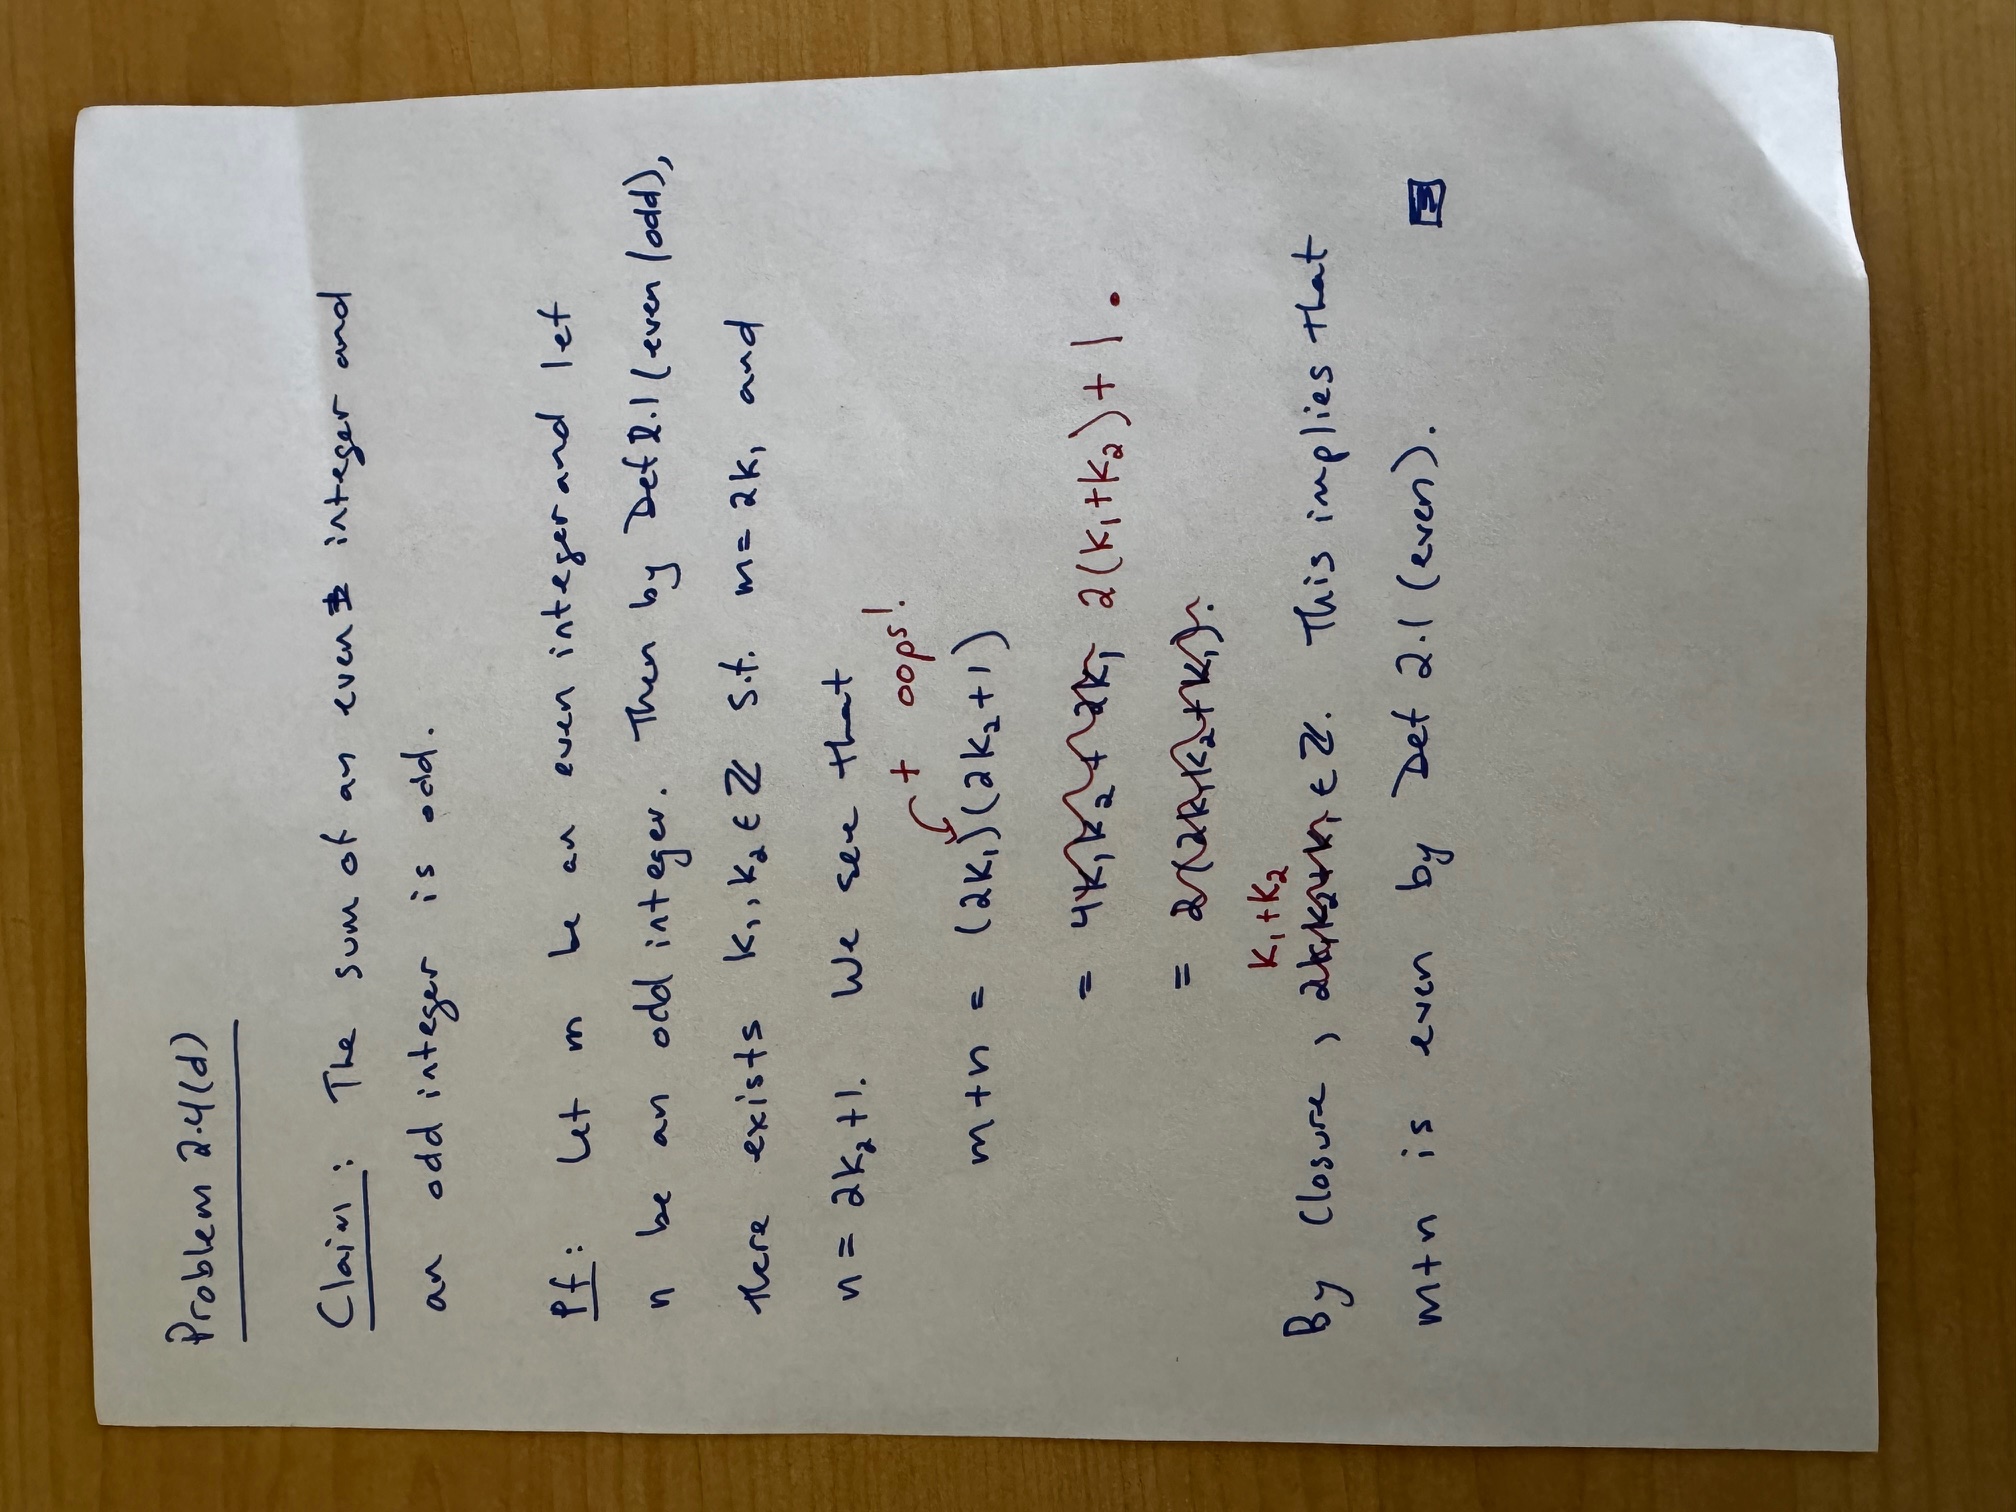 Problem 2.4(d)
Claim: The sum of an even integer and
an odd integer is odd.
Pf: Let m be an even integer and let
n be an odd integer. Then by Def 2.1 (even/odd),
there exists k₁, k₂ ∈ ℤ s.t. m = 2k₁ and
n = 2k₂+1. We see that
+ oops!
m+n = (2k₁)(2k₂+1)
= 4k₁k₂ + 2k₁ 2(k₁+k₂)+1.
= 2(2k₁k₂+k₁).
k₁+k₂
By closure, 2k₁k₂+k₁ ∈ ℤ. This implies that
m+n is even by Def 2.1 (even).